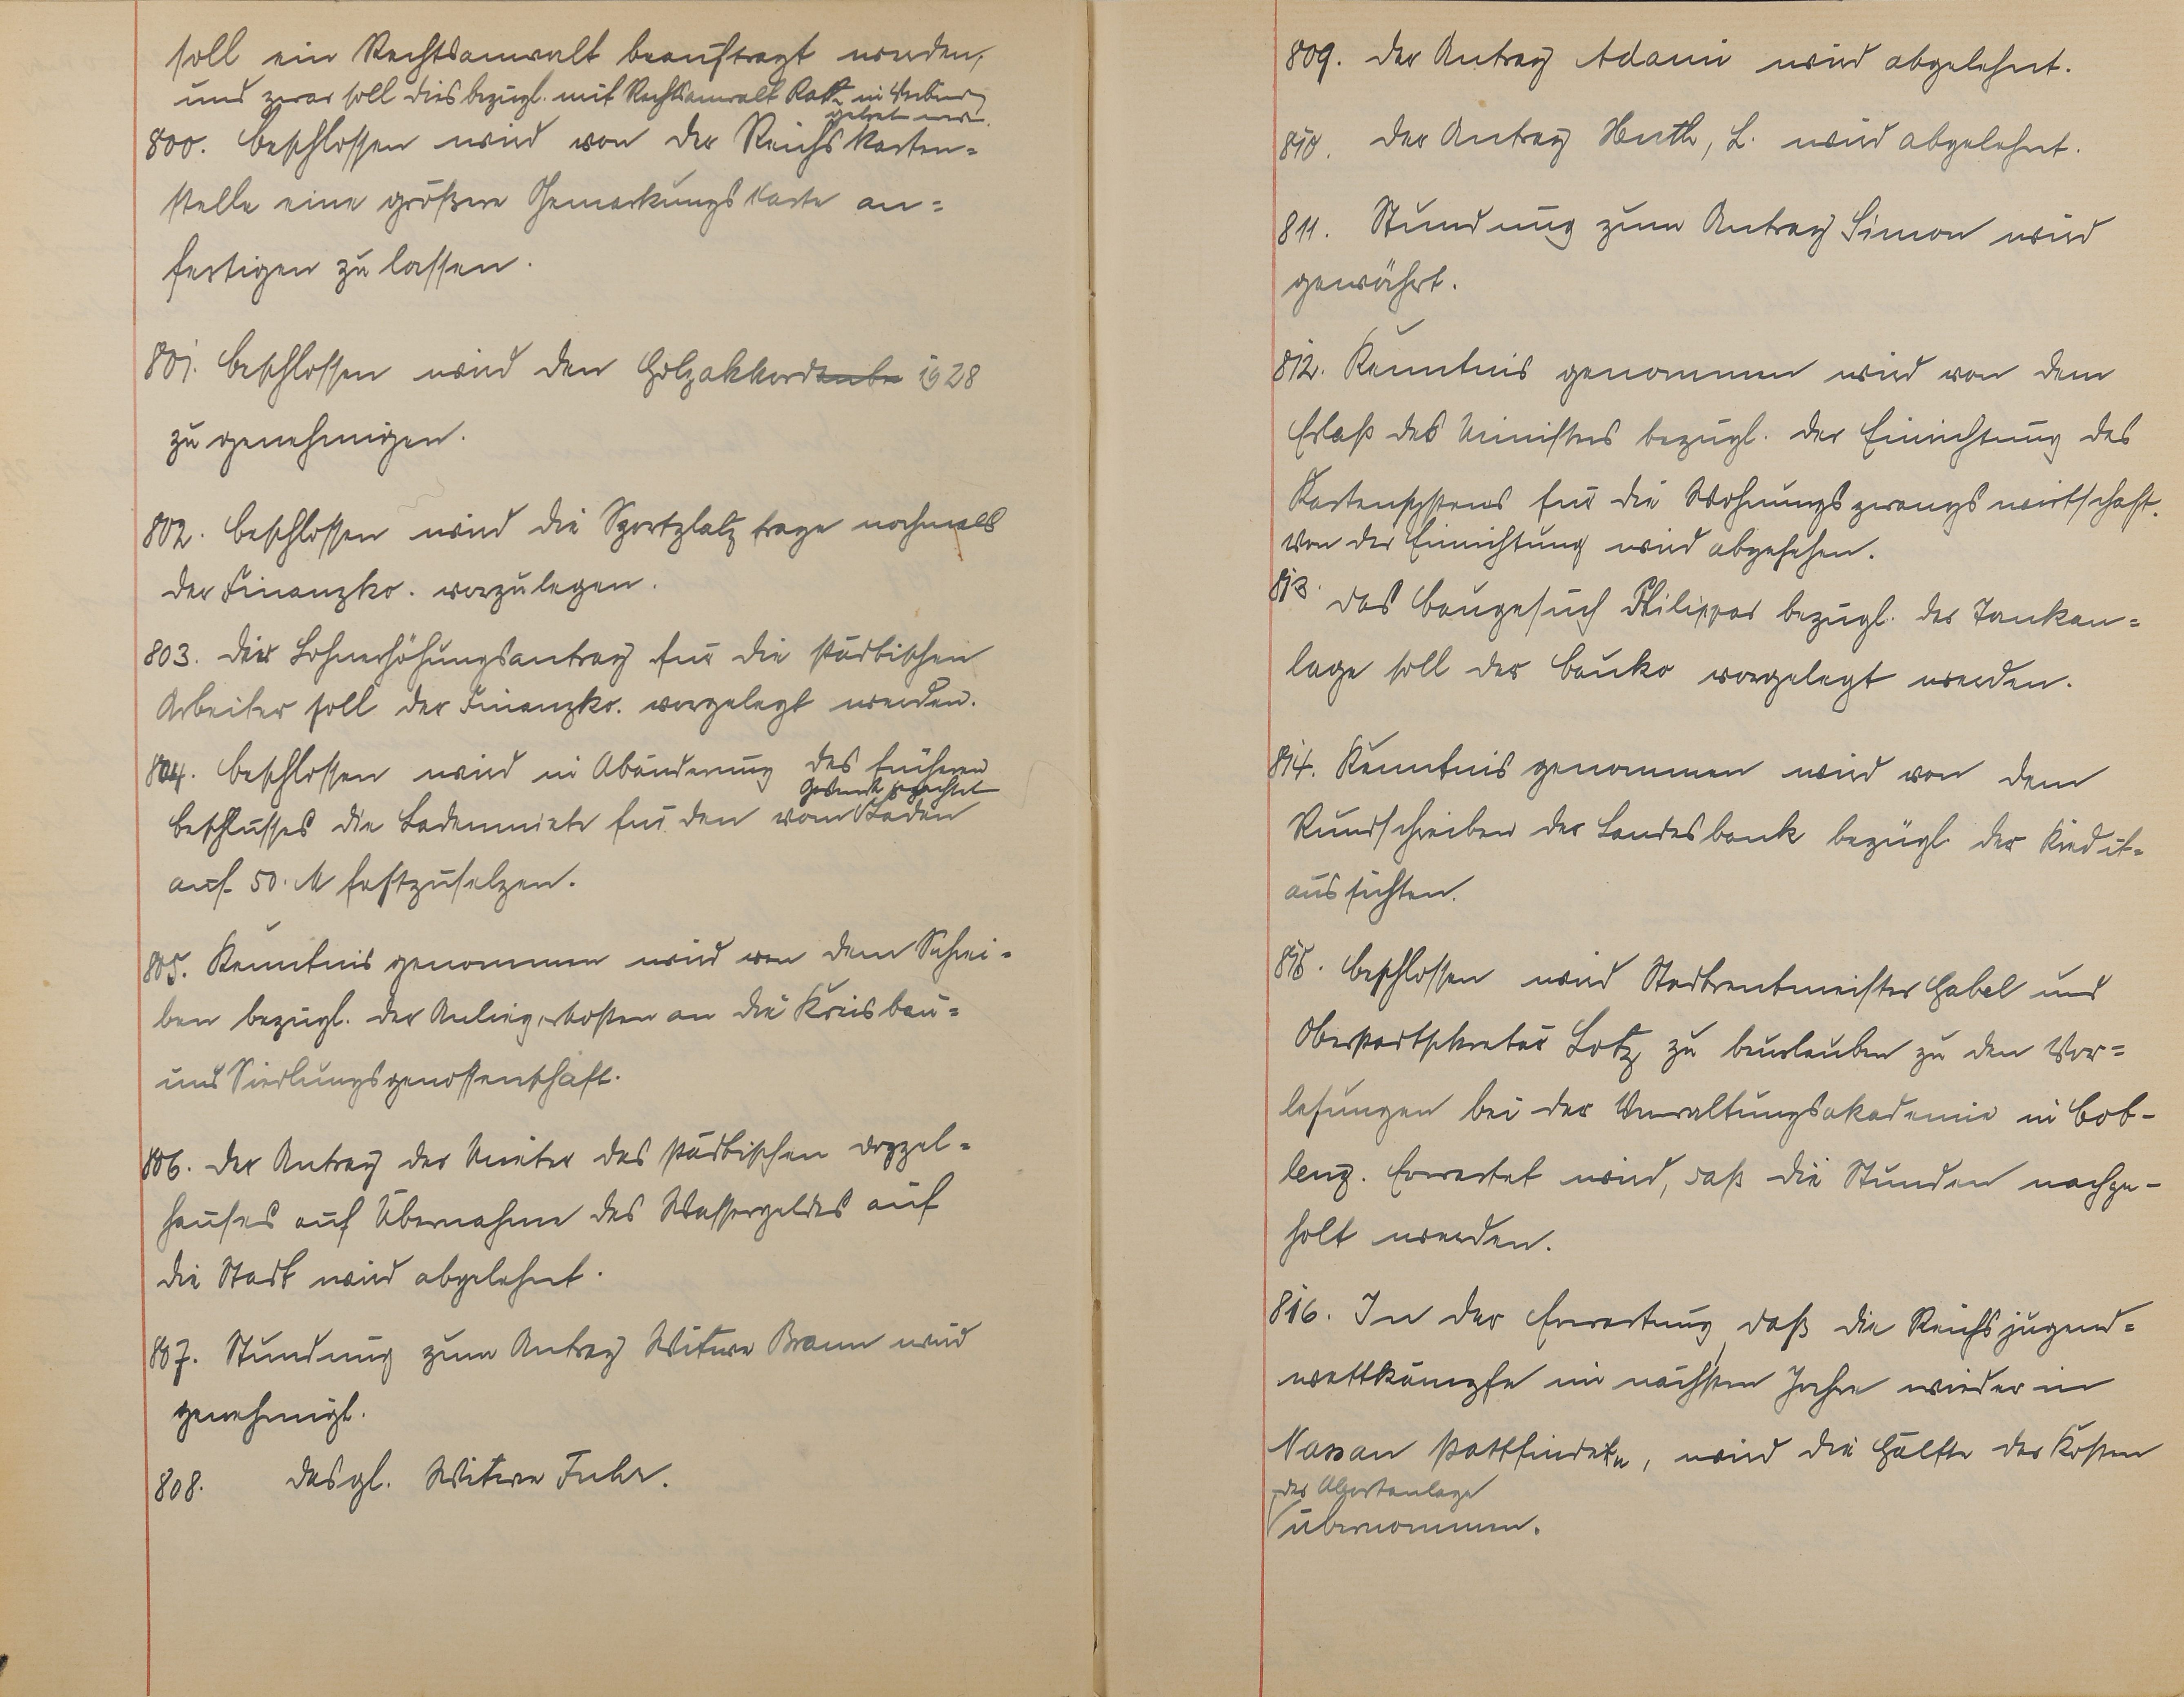 soll ein Rechtsanwalt beauftragt werden,
und zwar soll dies bezügl. mit Rechtsanwalt in Verbindg
getreten werden.
800. Beschlossen wird von der Reichskarten=
stelle eine größere Gemarkungskarte an=
fertigen zu lassen.
801. Beschlossen wird den Holzakkord 1928
zu genehmigen.
802. Beschlossen wird die Sportplatzfrage nochmals
der Finanzko. vorzulegen.
803. Der Lohnerhöhungsantrag für die städtischen
Arbeiter soll der Finanzko. vorgelegt werden.
804. Beschlossen wird in Abänderung des früheren
gepachtet
Beschlusses die Ladenmiete für den vom Laden
auf 50. M festzusetzen.
805. Kenntnis genommen wird von dem Schrei=
ben bezügl. der Anliegerkosten an die Kreisbau=
und Siedlungsgenossenschaft.
806. Der Antrag der Mieter des städtischen Doppel=
hauses auf Übernahme des Wassergeldes auf
die Stadt wird abgelehnt.
807. Stundung zum Antrag Witwe Braun wird
genehmigt.
808. desgl. Witwe Fuhr.
809. Der Antrag Adami wird abgelehnt.
810. Der Antrag Huth, L. wird abgelehnt.
811. Stundung zum Antrag Simon wird
gewährt.
812. Kenntnis genommen wird von dem
Erlaß des Ministers bezügl. der Einrichtung des
Kartensystems für die Wohnungszwangswirtschaft.
Von der Einrichtung wird abgesehen.
813. Das Baugesuch Philippar bezügl. der Tankan=
lage soll der Bauko vorgelegt werden.
814. Kenntnis genommen wird von dem
Rundschreiben der Landesbank bezügl. der Kredit=
aussichten.
815. Beschlossen wird Stadtrentmeister Habel und
Oberstadtsekretär Lotz zu beurlauben zu den Vor=
lesungen bei der Verwaltungsakademie in Cob-
lenz. Erwartet wird, daß die Stunden nachge-
holt werden.
816. In der Erwartung, daß die Reichsjugend=
wettkämpfe im nächsten Jahre wieder in
Nassau stattfinden, wird die Hälfte der Kosten
der Abortanlage
übernommen.